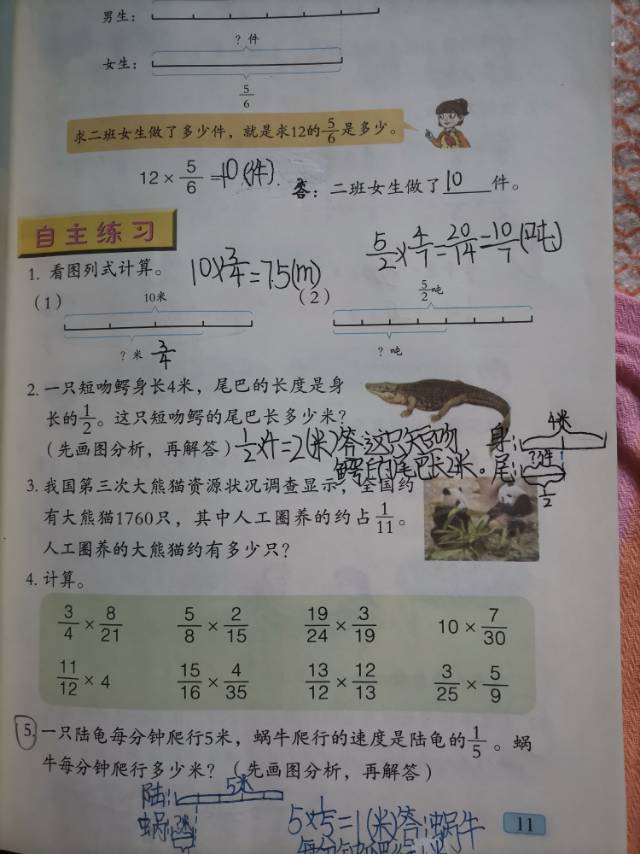 男生：
？件
女生：
5/6
求二班女生做了多少件，就是求12的5/6是多少。
12 × 5/6 =10(件)
答：二班女生做了10件。
自主练习
1. 看图列式计算。
10×3/4=7.5(m)
5/2×4/7=20/14=10/7(吨)
（1）
10米
？米 3/4
（2）
5/2吨
？吨
2. 一只短吻鳄身长4米，尾巴的长度是身
长的1/2。这只短吻鳄的尾巴长多少米？
（先画图分析，再解答）1/2×4=2(米)答:这只短吻
鳄的尾巴长2米。
4米
身:
尾:
?件
1/2
3. 我国第三次大熊猫资源状况调查显示，全国约
有大熊猫1760只，其中人工圈养的约占1/11。
人工圈养的大熊猫约有多少只？
4. 计算。
3/4 × 8/21 5/8 × 2/15 19/24 × 3/19 10 × 7/30
11/12 × 4 15/16 × 4/35 13/12 × 12/13 3/25 × 5/9
5. 一只陆龟每分钟爬行5米，蜗牛爬行的速度是陆龟的1/5。蜗
牛每分钟爬行多少米？（先画图分析，再解答）
陆:
5米
蜗:
5×1/5=1(米)答:蜗牛
11